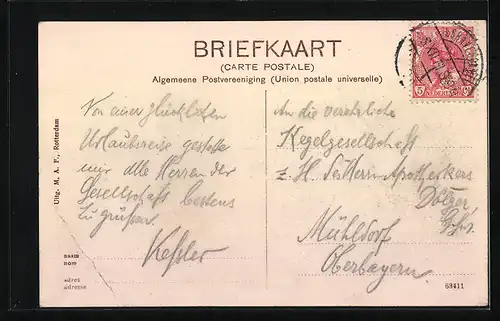 BRIEFKAART
(CARTE POSTALE)
Algemeene Postvereeniging (Union postale universelle)
Von einer glücklichen
Urlaubsreise gestatte
mir alle Herren der
Gesellschaft bestens
zu grüßen.
Kessler
An die verehrliche
Kegelgesellschaft
z. H. des Herrn Apothekers
Dölzer
Mühldorf
Oberbayern.
Uitg. M. A. F., Rotterdam
naam
nom
adres
adresse
63411
5
NEDERLAND